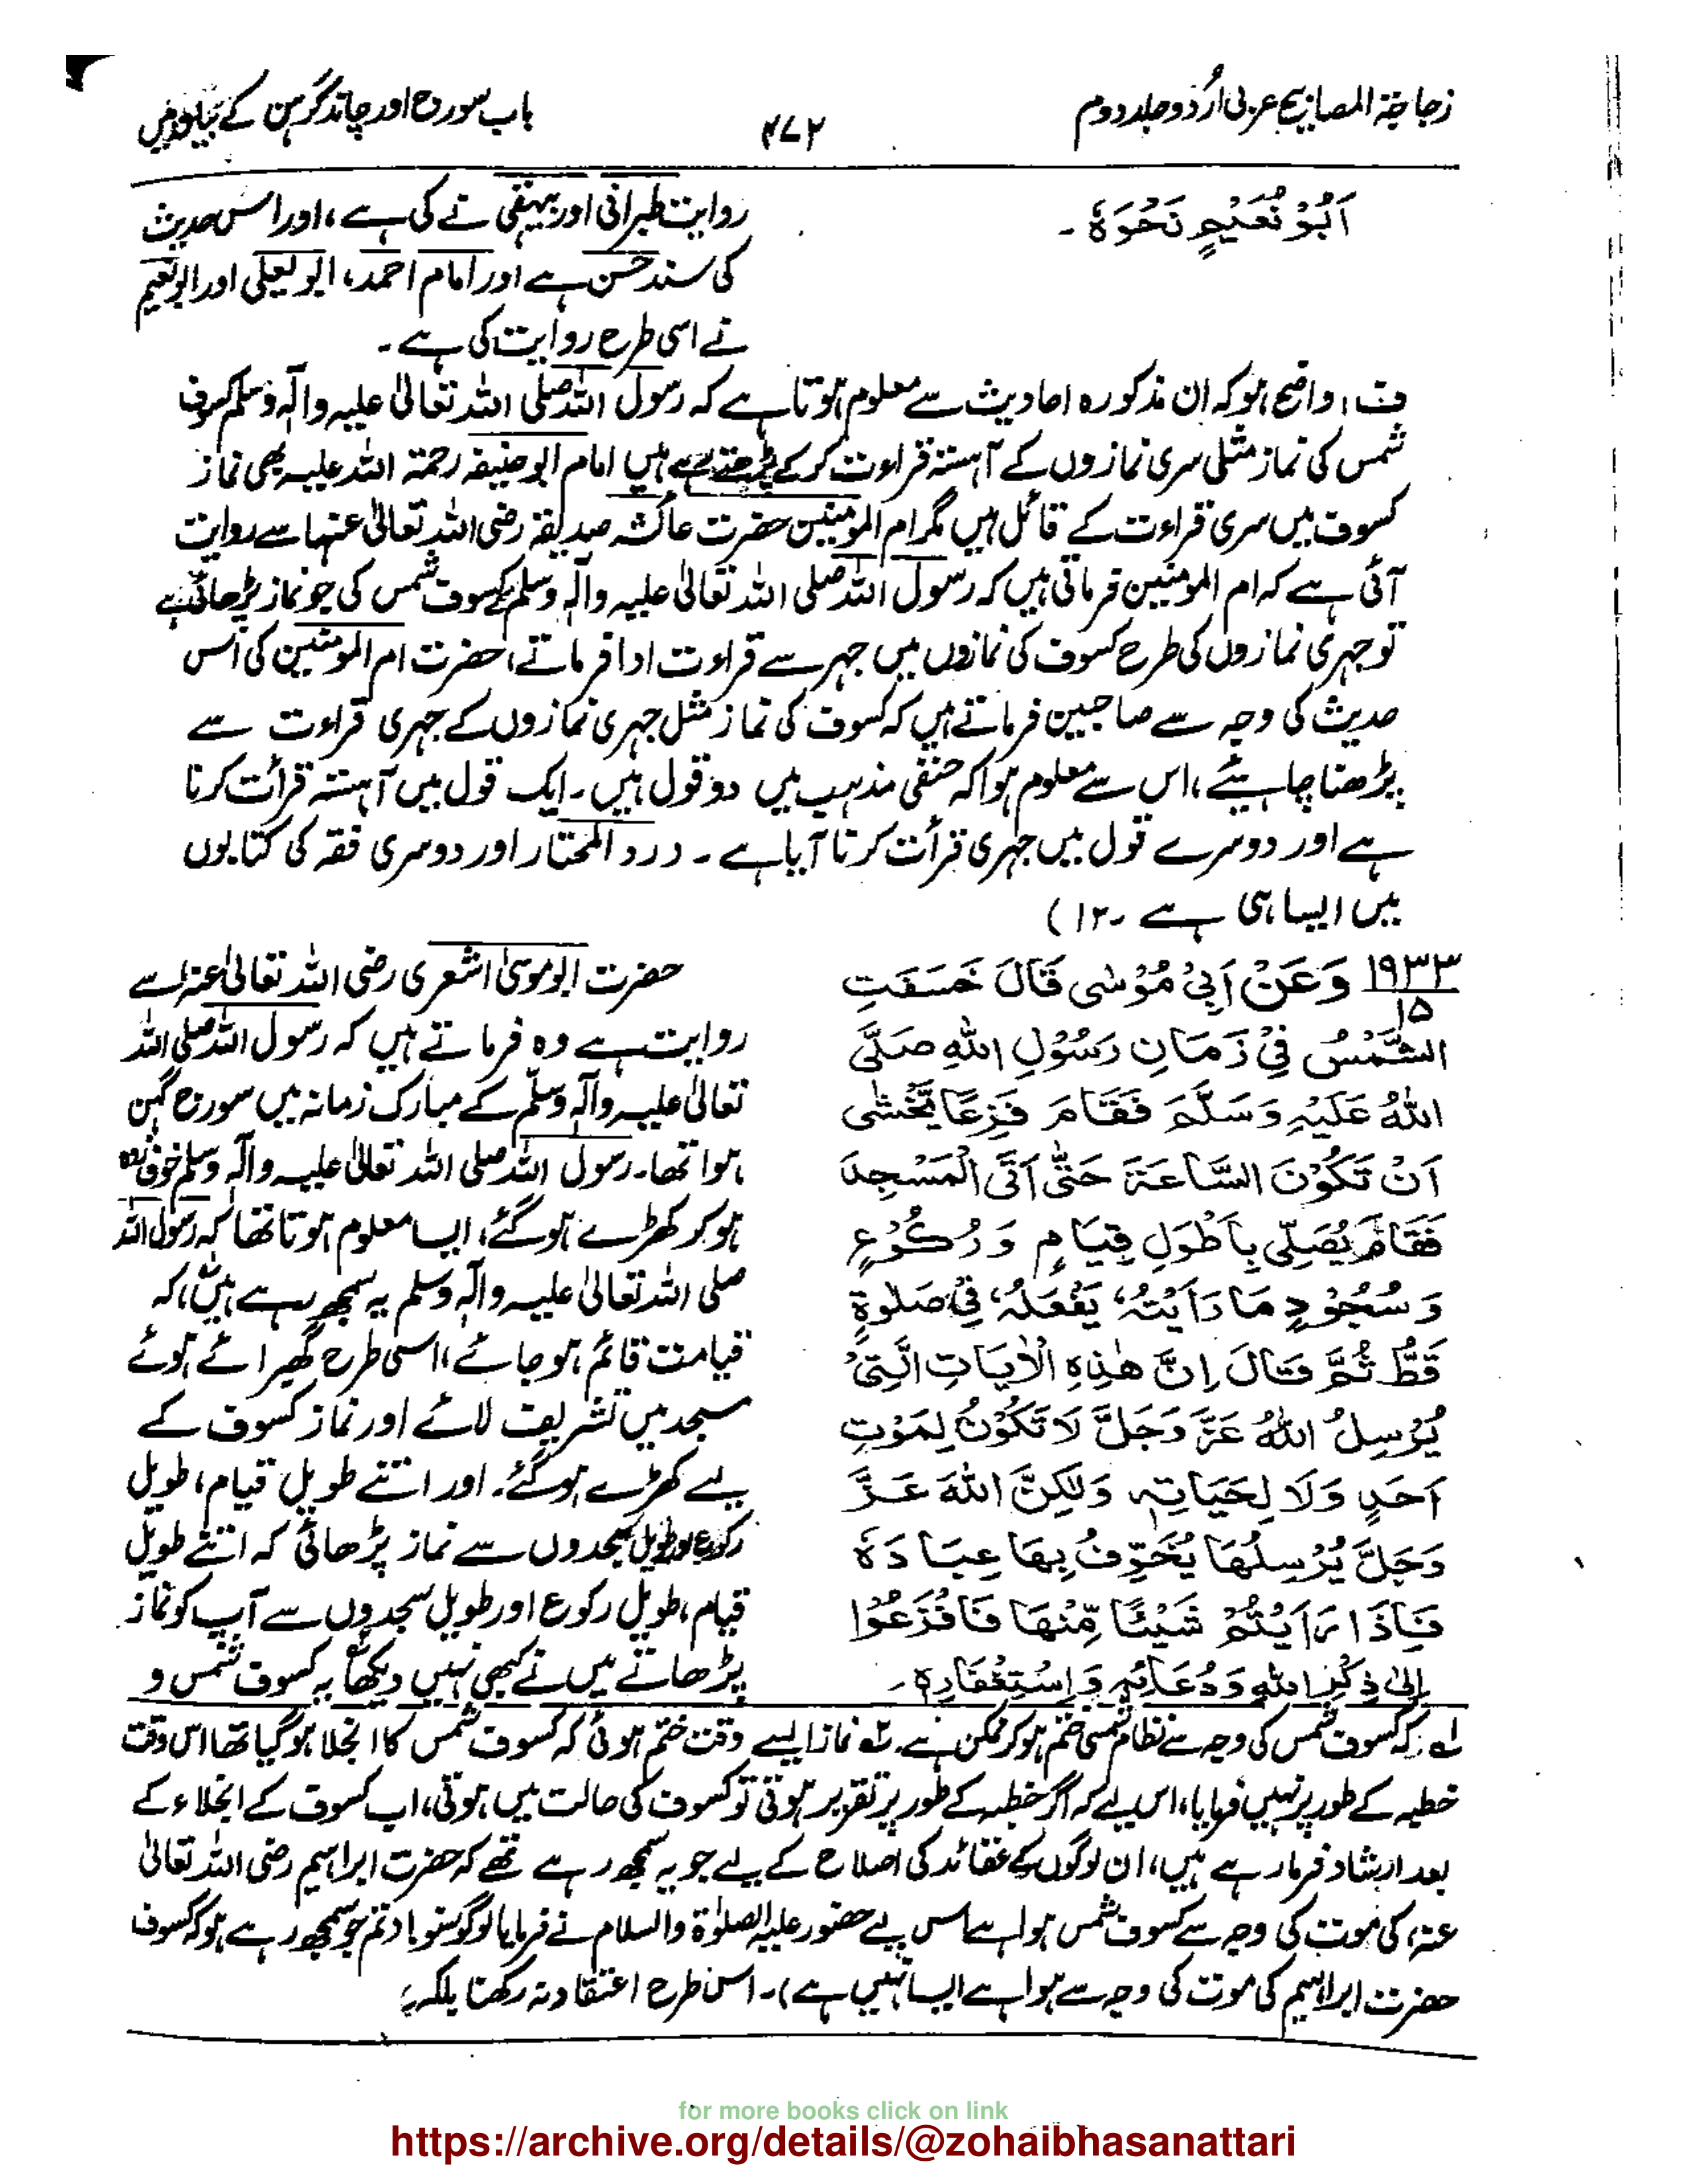 زجاجۃ المصابیح عربی اُردو جلد دوم
۴۷۲
باب سورج اور چاند گرہن کے بیان میں
اَبُوْ نُعَيْمٍ نَحْوَهٗ ۔
روایت طبرانی اور بیہقی نے کی ہے ، اور اس حدیث
کی سند حسن ہے اور امام احمد، ابو یعلی اور ابو نعیم
نے اسی طرح روایت کی ہے ۔
ف؛ واضح ہو کہ ان مذکورہ احادیث سے معلوم ہوتا ہے کہ رسول اللہ صلی اللہ تعالیٰ علیہ واٰلہٖ وسلم کسوف
شمس کی نماز مثلی سری نمازوں کے آہستہ قراءت کر کے پڑھتے رہے ہیں امام ابو حنیفہ رحمۃ اللہ علیہ بھی نماز
کسوف میں سری قراءت کے قائل ہیں مگر ام المؤمنین حضرت عائشہ صدیقہ رضی اللہ تعالیٰ عنہا سے روایت
آئی ہے کہ ام المومنین فرماتی ہیں کہ رسول اللہ صلی اللہ تعالیٰ علیہ واٰلہٖ وسلم کسوف شمس کی جو نماز پڑھائی ہے
تو جہری نمازوں کی طرح کسوف کی نمازوں میں جہر سے قراءت ادا فرماتے، حضرت ام المومنین کی اس
حدیث کی وجہ سے صاحبین فرماتے ہیں کہ کسوف کی نماز مثل جہری نمازوں کے جہری قراءت سے
پڑھنا چاہیئے ، اس سے معلوم ہوا کہ حنفی مذہب میں دو قول ہیں ۔ ایک قول میں آہستہ قرأت کرنا
ہے اور دوسرے قول میں جہری قرأت کرنا آیا ہے ۔ درد المختار اور دوسری فقہ کی کتابوں
میں ایسا ہی ہے ۔۱۲)
۱۹۳۳ وَعَنْ اَبِيْ مُوْسٰى قَالَ خَسَفَتِ
۱۵
الشَّمْسُ فِيْ زَمَانِ رَسُوْلِ اللهِ صَلَّى
اللهُ عَلَيْهِ وَسَلَّمَ فَقَامَ فَزِعًا يَّخْشٰى
اَنْ تَكُوْنَ السَّاعَةَ حَتّٰى اَتَى الْمَسْجِدَ
فَقَامَ يُصَلِّيْ بِاَطْوَلِ قِيَامٍ وَرُكُوْعٍ
وَسُجُوْدٍ مَا رَاَيْتُهٗ يَفْعَلُهٗ فِيْ صَلٰوةٍ
قَطُّ ثُمَّ قَالَ اِنَّ هٰذِهِ الْاٰيَاتِ الَّتِيْ
يُرْسِلُ اللهُ عَزَّ وَجَلَّ لَا تَكُوْنُ لِمَوْتِ
اَحَدٍ وَلَا لِحَيَاتِهٖ وَلٰكِنَّ اللهَ عَزَّ
وَجَلَّ يُرْسِلُهَا يُخَوِّفُ بِهَا عِبَادَهٗ
فَاِذَا رَاَيْتُمْ شَيْئًا مِّنْهَا فَافْزَعُوْا
اِلٰى ذِكْرِ اللهِ وَدُعَائِهٖ وَاِسْتِغْفَارِهٖ ۔
حضرت ابو موسیٰ اشعری رضی اللہ تعالیٰ عنہ سے
روایت ہے وہ فرماتے ہیں کہ رسول اللہ صلی اللہ
تعالیٰ علیہ واٰلہٖ وسلّم کے مبارک زمانہ میں سورج گہن
ہوا تھا۔ رسول اللہ صلی اللہ تعالیٰ علیہ واٰلہٖ وسلم خوفزدہ
ہو کر کھڑے ہو گئے، ایسا معلوم ہوتا تھا کہ رسول اللہ
صلی اللہ تعالیٰ علیہ واٰلہٖ وسلم یہ سمجھ رہے ہیں، کہ
قیامت قائم ہو جائے ، اسی طرح گھبرائے ہوئے
مسجد میں تشریف لائے اور نماز کسوف کے
لیے کھڑے ہو گئے۔ اور اتنے طویل قیام، طویل
رکوع اور طویل سجدوں سے نماز پڑھائی کہ اتنے طویل
قیام، طویل رکوع اور طویل سجدوں سے آپ کو نماز
پڑھاتے میں نے کبھی نہیں دیکھا۔ کسوف شمس و
لہ: کہ کسوف شمس کی وجہ سے نظام شمسی ختم ہو کر ممکن ہے۔ نماز ایسے وقت ختم ہوئی کہ کسوف شمس کا انجلا ہو گیا تھا اس وقت
خطبہ کے طور پر نہیں فرمایا، اس لیے کہ اگر خطبہ کے طور پر تقریر ہوتی تو کسوف کی حالت میں ہوتی، اب کسوف کے انجلاء کے
بعد ارشاد فرما رہے ہیں، ان لوگوں کے عقائد کی اصلاح کے لیے جو یہ سمجھ رہے تھے کہ حضرت ابراہیم رضی اللہ تعالیٰ
عنہ، کی موت کی وجہ سے کسوف شمس ہوا ہے اس لیے حضور علیہ الصلوٰۃ والسلام نے فرمایا لوگو سنو! دتم جو سمجھ رہے ہو کہ کسوف
حضرت ابراہیم کی موت کی وجہ سے ہوا ہے ایسا نہیں ہے)۔ اس طرح اعتقاد نہ رکھنا بلکہ
for more books click on link
https://archive.org/details/@zohaibhasanattari